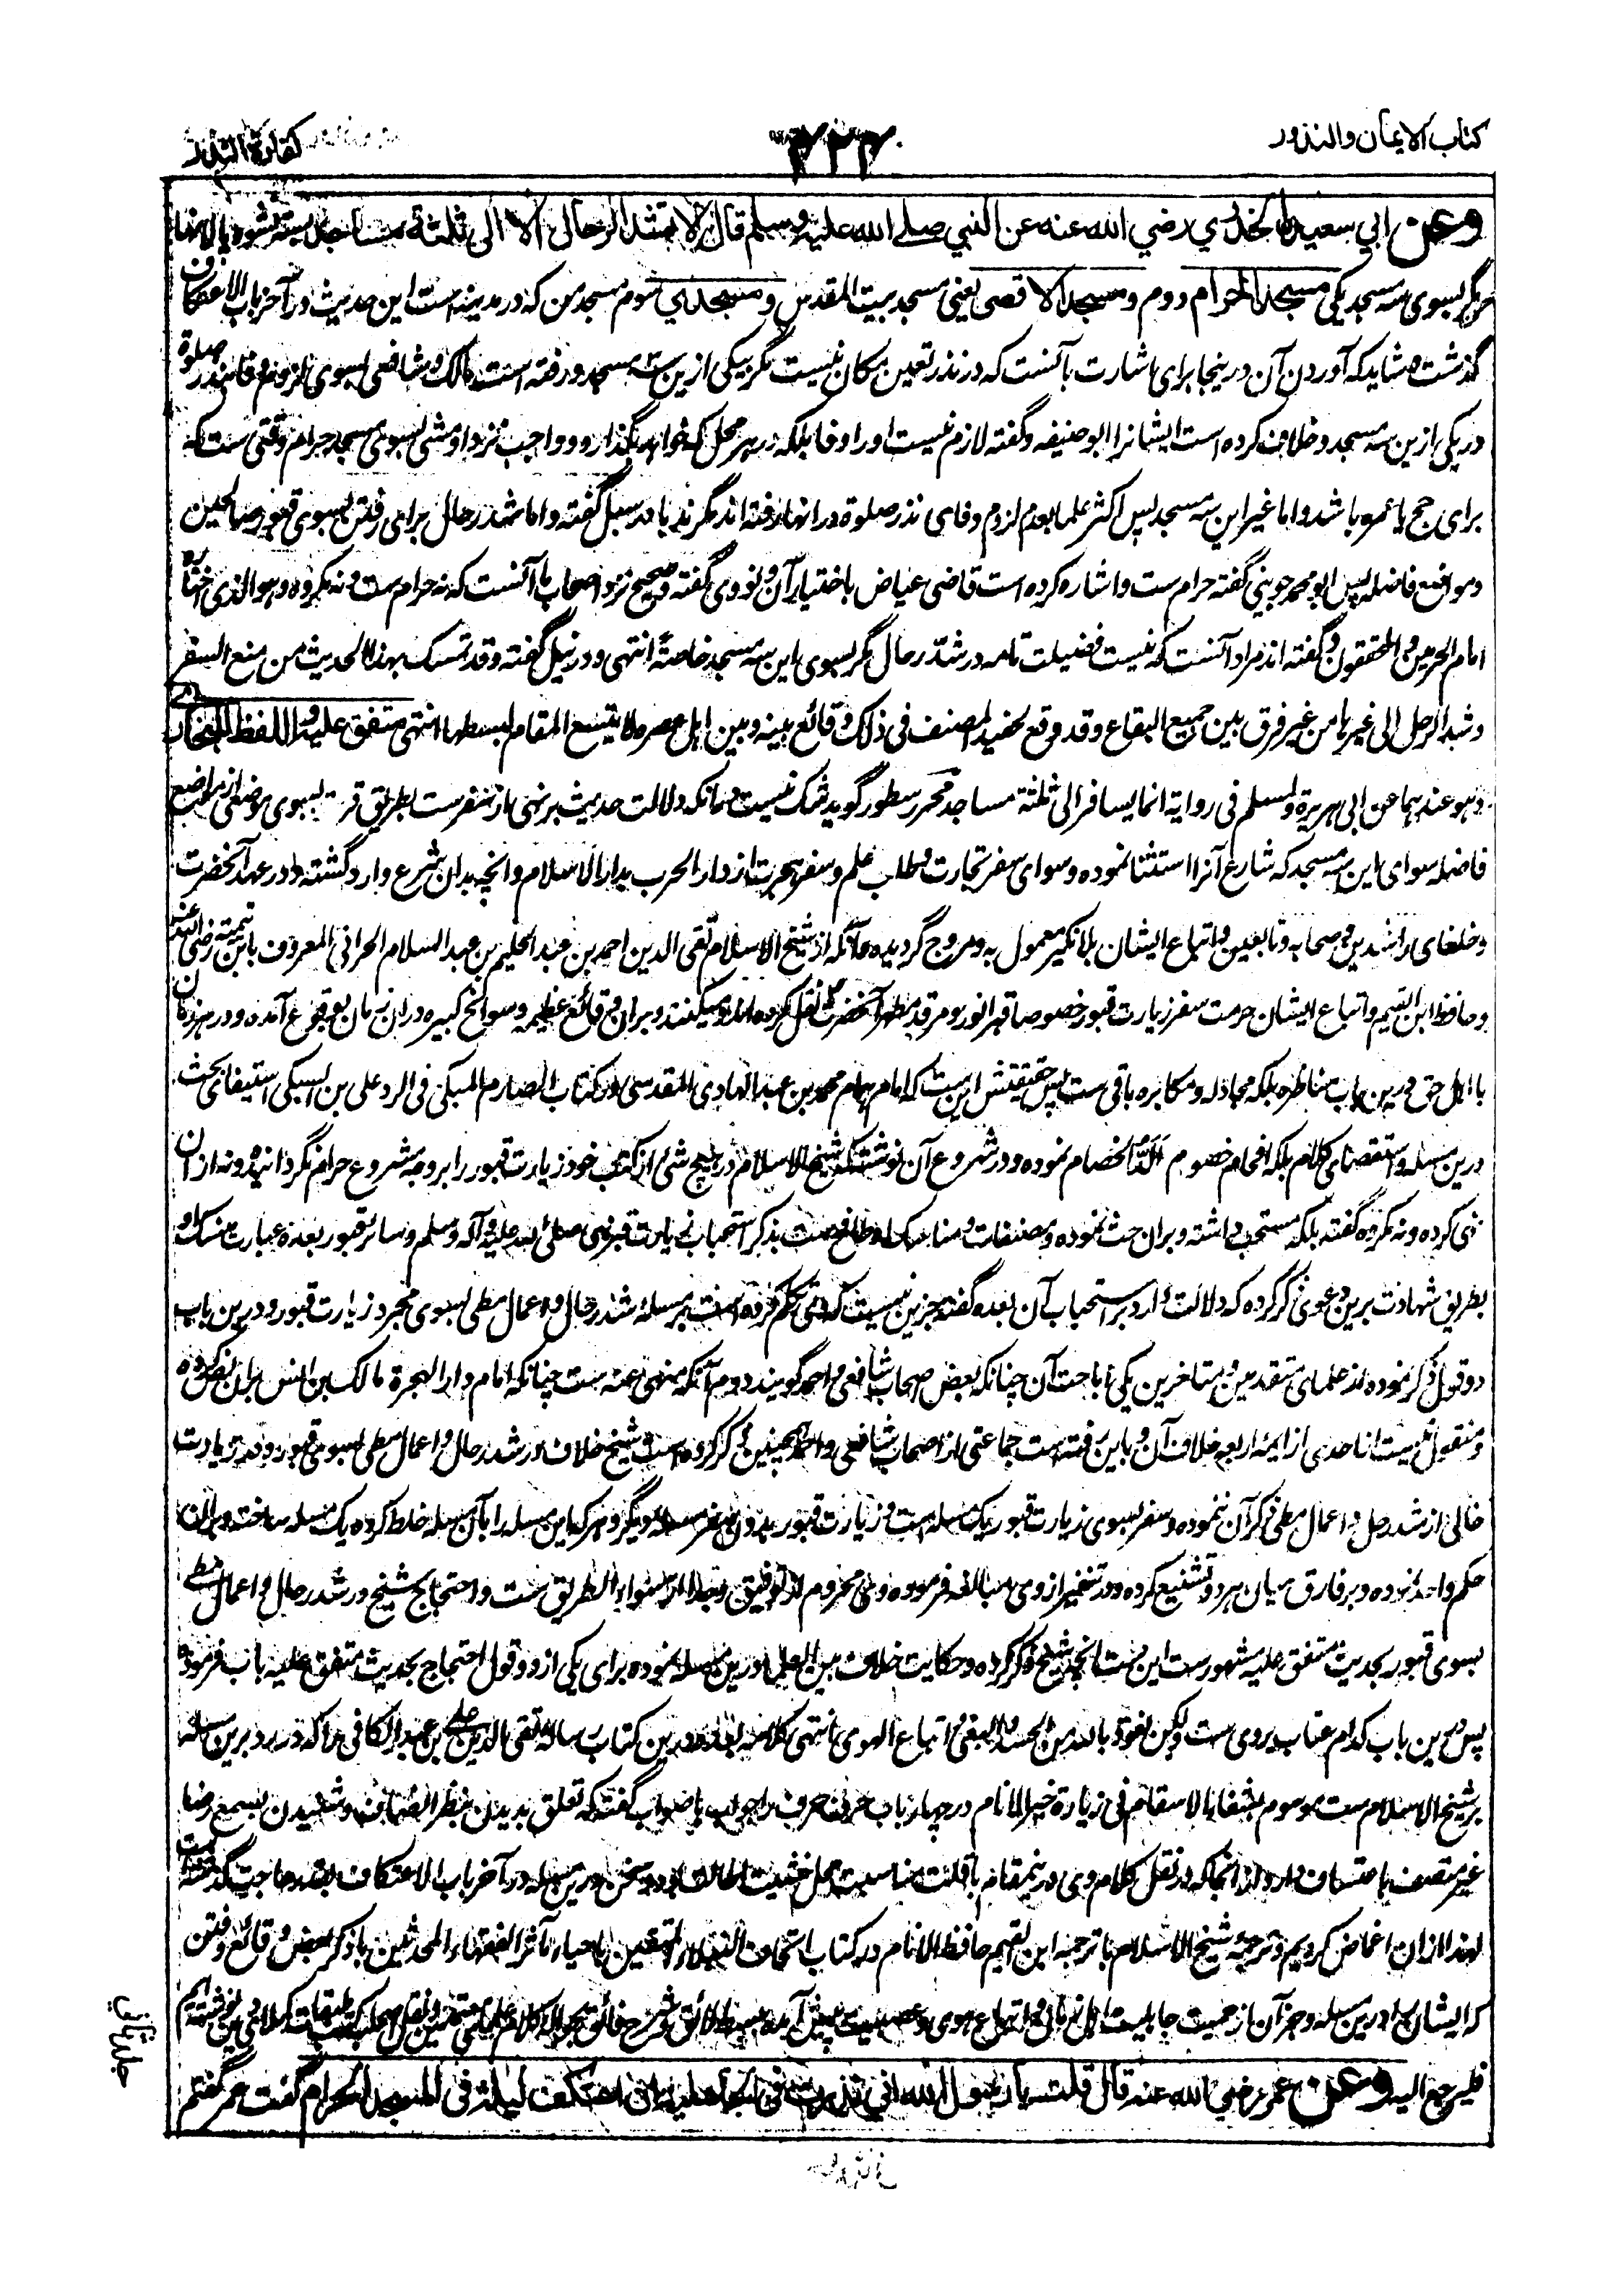 کتاب الایمان والنذور
۴۲۳
کفارة النذر
وعن ابي سعيد الخدري رضي الله عنه عن النبي صلے الله عليه وسلم قال لا تشد الرحال الا الى ثلثة مساجد بسته نشود پالانها
مگر بسوی سه مسجد یکی مسجد الحرام دوم ومسجد الاقصى یعنی مسجد بیت المقدس ومسجدي سوم مسجد من که در مدینه است این حدیث در آخر باب الاعتکاف
گذشت و شاید که آوردن آن درینجا برای اشارت بآنست که در نذر تعین مکان نیست مگر بیکی ازین سه مسجد و رفته است مالک و شافعی بسوی لزوم وفا بنذر صلوة
در یکی ازین سه مسجد و خلاف کرده است ایشانرا ابو حنیفه و گفته لازم نیست او را وفا بلکه در هر محل که خواهد بگذارد و واجب نزد او مشی بسوی مسجد حرام وقتی ست که
برای حج یا عمره باشد و اما غیر این سه مسجد پس اکثر علما بعدم لزوم وفای نذر صلوة در انها رفته اند مگر ندبا در سبل گفته و اما شد رحال برای رفتن بسوی قبور صالحین
و مواضع فاضله پس ابو محمد جوینی گفته حرام ست و اشاره کرده است قاضی عیاض باختیار آن و نووی گفته و صحیح نزد اصحاب ما آنست که نه حرام ست و نه مکروه و هو الذی اختاره
امام الحرمین و المحققون و گفته اند مراد آنست که نیست فضیلت تامه در شد رحال مگر بسوی این سه مسجد خاصة انتهی و در نیل گفته و قد تمسک بهذا الحدیث من منع السفر
و شد الرحل الی غیرها من غیر فرق بین جمیع البقاع و قد وقع لحفید المصنف فی ذلک وقائع بینه و بین اهل عصره لا یتسع المقام لبسطها انتهی متفق عليه واللفظ للبخاري
و هو عندهما عن ابی هریرة و لمسلم فی روایة انما یسافر الی ثلثة مساجد محرر سطور گوید شک نیست در آنکه دلالت حدیث بر نهی از سفر ست بطریق قربت بسوی موضعی از مواضع
فاضله سوای این سه مسجد که شارع آنرا استثنا نموده و سوای سفر تجارت و طلب علم و سفر هجرت از دار الحرب بدار الاسلام و انچه بدان شرع وارد گشته و در عهد آنحضرت
و خلفای راشدین و صحابه و تابعین و اتباع ایشان بلا نکیر معمول به و مروج گردیده و آنکه از شیخ الاسلام تقی الدین احمد بن عبد الحلیم بن عبد السلام الحرانی المعروف بابن تیمیه رضی الله عنه
و حافظ ابن القیم و اتباع ایشان حرمت سفر زیارت قبور خصوصا قبر انور و مرقد مطهر آنحضرت نقل کرده اند و میکنند و بران وقائع عظیمه و سوانح کبیره دران زمان بوقوع آمده و در هر زمان
با اهل حق درین باب مناظره بلکه مجادله و مکابره باقی ست پس حقیقتش این ست که امام همام محمد بن عبد الهادی المقدسی در کتاب الصارم المنکی فی الرد علی بن السبکی استیفای بحث
درین مسئله و استقصای کلام بلکه افحام خصوم الد الخصام نموده و در شروع آن نوشته که شیخ الاسلام در هیچ شی از کتب خود زیارت قبور را بر وجه مشروع حرام نگردانیده و نه از ان
نهی کرده و نه مکروه گفته بلکه مستحب داشته و بران حث نموده و مصنفات و مناسک او طافح ست بذکر استحباب زیارت قبر نبی صلی الله علیه و آله و سلم و سائر قبور بعده عبارت منسک او
بطریق شهادت برین دعوی ذکر کرده که دلالت دارد بر استحباب آن بعده گفته جز این نیست که وی تکلم کرده است بر مسئله شد رحال و اعمال مطی بسوی مجرد زیارت قبور و درین باب
دو قول ذکر نموده از علمای متقدمین و متاخرین یکی اباحت آن چنانکه بعض اصحاب شافعی و احمد گویند دوم آنکه منهی عنه ست چنانکه امام دار الهجرة مالک بن انس بران نص کرده
و منقول نیست از احدی از ایمه اربعه خلاف آن و باین رفته است جماعتی از اصحاب شافعی و احمد همچنین ذکر کرده است شیخ خلاف در شد رحال و اعمال مطی بسوی قبور و در زیارت
خالی از شد رحل و اعمال مطی ذکر آن ننموده و سفر بسوی زیارت قبور یک مسئله است و زیارت قبور بدون سفر مسئله دیگر و هر که این مسئله را بآن مسئله خلط کرده یک مسئله ساخته و بران
حکم واحد نموده و بر فارق میان هر دو تشنیع کرده و در تنفیر از وی مبالغه فرموده وی محروم از توفیق و جدا از سواء الطریق ست و احتجاج شیخ در شد رحال و اعمال مطی
بسوی قبور بحدیث متفق علیه مشهور ست این ست انچه شیخ ذکر کرده و حکایت خلاف بین العلما درین مسئله نموده برای یکی از دو قول احتجاج بحدیث متفق علیه باب فرموده
پس درین باب کدام عتاب بروی ست و لکن نعوذ بالله من الحسد و البغی و اتباع الهوی انتهی کلامه بعده درین کتاب رساله تقی الدین علی بن عبد الکافی را که در رد برین مسئله
بر شیخ الاسلام ست موسوم بشفاء الاسقام فی زیارة خیر الانام در چهار باب حرفا حرف جواب باصواب گفته که تعلق بدیدن بنظر انصاف و شنیدن بسمع رضا
غیر متصف باعتساف دارد و از انجا که در نقل کلام وی درین مقام با قلت مناسبت محل خشیت اطالت بود و سخن درین مسئله در آخر باب الاعتکاف بقدر حاجت گذشته است
لهذا ازان اغماض کردیم و ترجمه شیخ الاسلام با ترجمه ابن القیم حافظ الانام در کتاب اتحاف النبلاء المتقین باحیاء مآثر الفقهاء المحدثین با ذکر بعض وقائع و فتن
که ایشان را درین مسئله و جز آن از حمیت جاهلیت اهل زمان و اتباع هوی و عصبیت پیش آمده ببسط لائق و شرح فائق بحواله کلام
فلیرجع الیه وعن عمر رضي الله عنه قال قلت يا رسول الله اني نذرت في الجاهلية ان اعتكف ليلة في المسجد الحرام گفت عمر گفتم
جلد ثانی